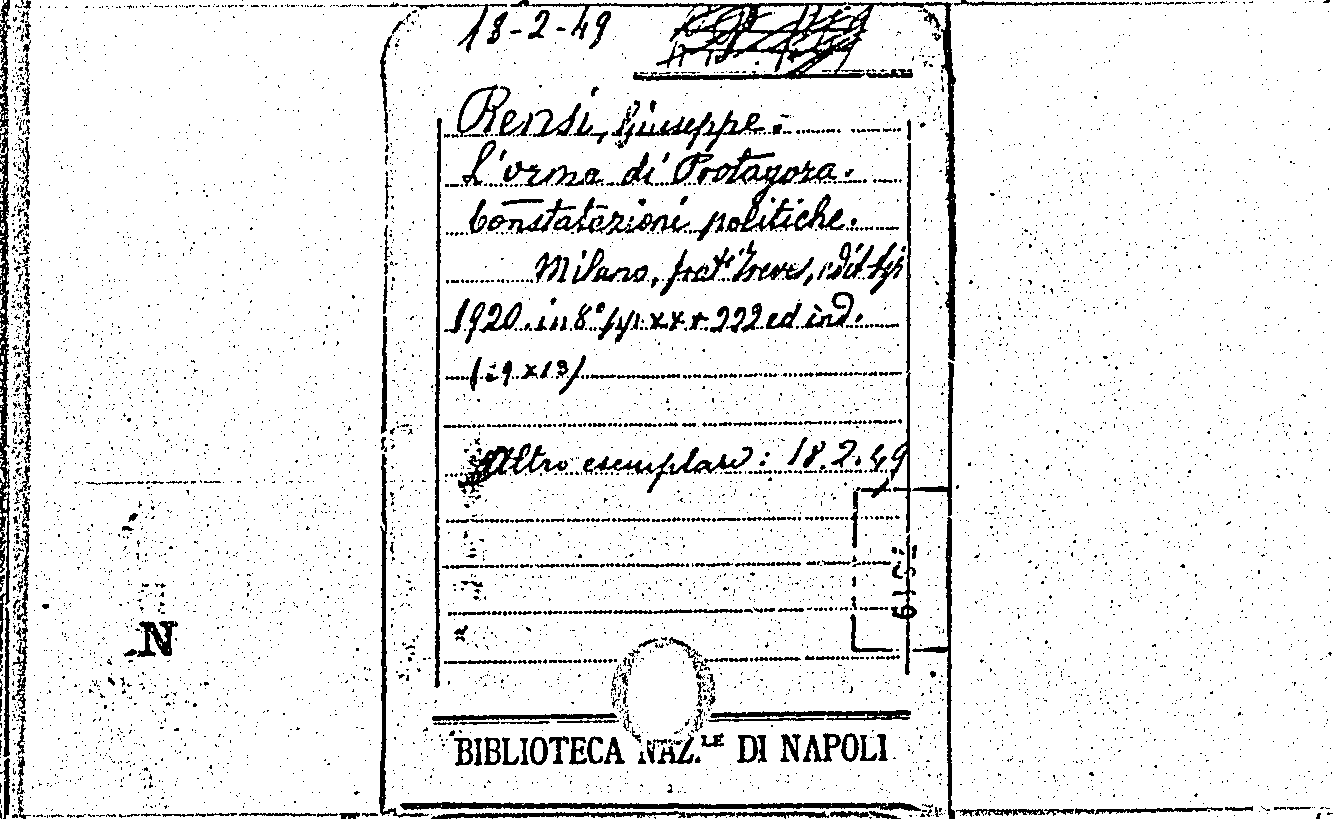 18-2-49
Rensi, Giuseppe.
L'orma di Protagora.
Constatazioni politiche.
Milano, frat.i Treves, edit. tip.
1920. in 8° pp. xx + 222 ed ind.
(19x13)
Altro esemplare: 18.2.49
N
BIBLIOTECA NAZ.LE DI NAPOLI